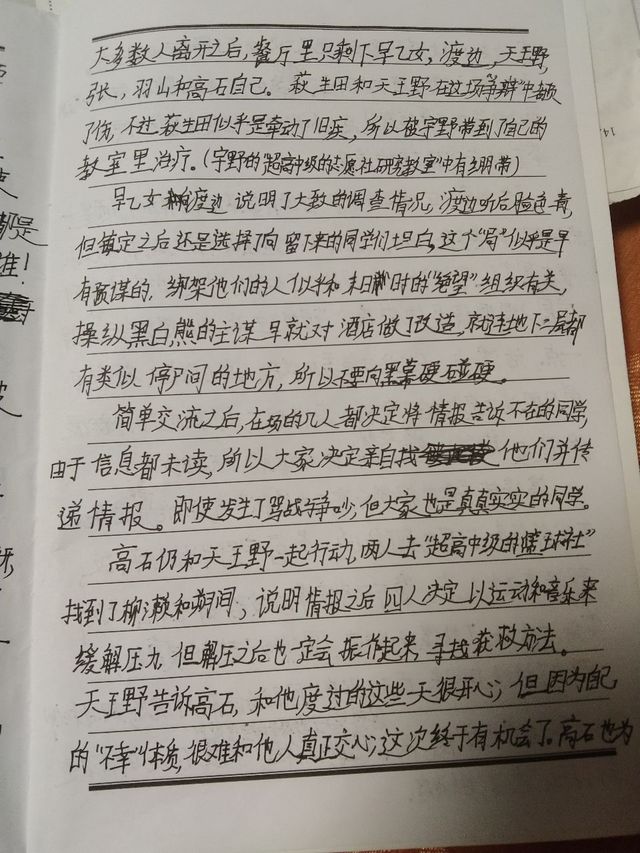 大多数人离开之后，餐厅里只剩下早乙女，渡边，天王野，
张，羽山和高石自己。萩生田和天王野在这场“争辩”中都
了伤，不过萩生田似乎是牵动了旧疾，所以被宇野带到了自己的
教室里治疗。（宇野的“超高中级的志愿社研究教室”中有绷带）
早乙女和渡边说明了大致的调查情况，渡边听后脸色青，
但镇定之后还是选择了向留下来的同学们坦白，这个“局”似乎是早
有预谋的，绑架他们的人似乎和末日时的“绝望”组织有关，
操纵黑白熊的主谋早就对酒店做了改造，就连地下二层都
有类似停尸间的地方，所以不要向黑幕硬碰硬。
简单交流之后，在场的几人都决定将情报告诉不在的同学，
由于信息都未读，所以大家决定亲自找他们并传
递情报。即使发生了骂战争吵，但大家也是真真实实的同学。
高石仍和天王野一起行动，两人去“超高中级的篮球社”
找到了柳濑和朔间，说明情报之后四人决定以运动和音乐来
缓解压力，但解压之后也一定会振作起来，寻找获救方法。
天王野告诉高石，和他度过的这些天很开心；但因为自己
的“不幸”体质，很难和他人真正交心；这次终于有机会了。高石也为
14.
都是
谁！
皮